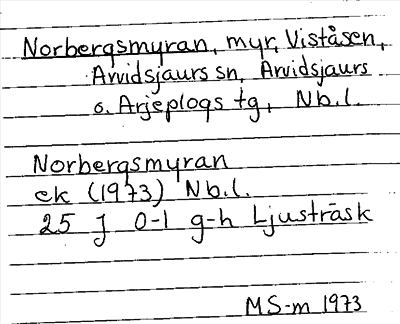 Norbergsmyran, myr, Viståsen,
Arvidsjaurs sn, Arvidsjaurs
o. Arjeplogs tg, Nb.l.
Norbergsmyran
ek (1973) Nb.l.
25 J 0-1 g-h Ljusträsk
MS-m 1973